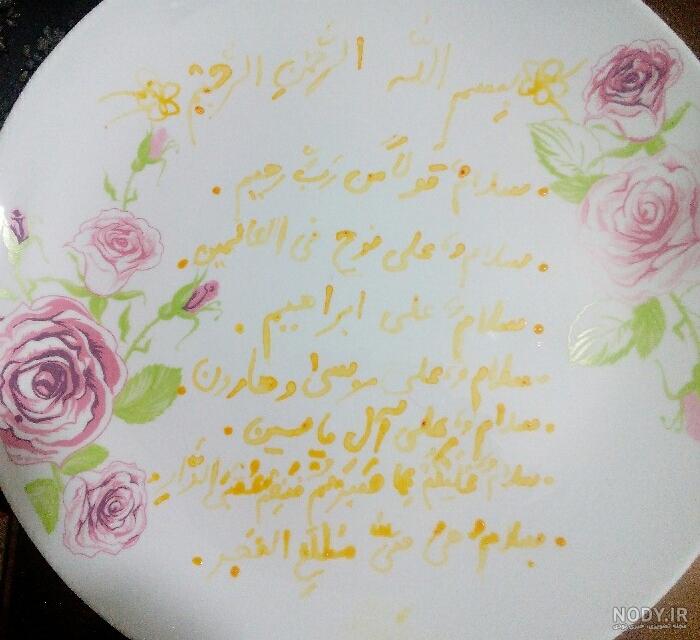 بسم الله الرَّحْمنِ الرَّحِیمِ
سلامٌ قولاً من رَبٍّ رحیم.
سلامٌ علی نوح فی العالمین.
سلامٌ علی ابراهیم.
سلامٌ علی موسی وهارون.
سلامٌ علی آل یاسین.
سلامٌ عَلَیْکُمْ بِما صَبَرْتُمْ فَنِعْمَ عُقْبَی الدَّارِ.
سلامٌ هی حتّی مَطْلَعِ الفجر.
NODY.IR